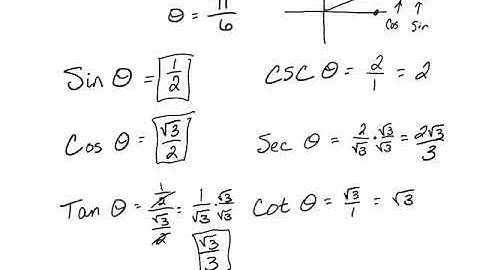 θ = π/6
Cos Sin
Sin θ = 1/2 CSC θ = 2/1 = 2
Cos θ = √3/2 Sec θ = 2/√3 · √3/√3 = 2√3/3
Tan θ = (1/2)/(√3/2) = 1/√3 · √3/√3 Cot θ = √3/1 = √3
√3/3